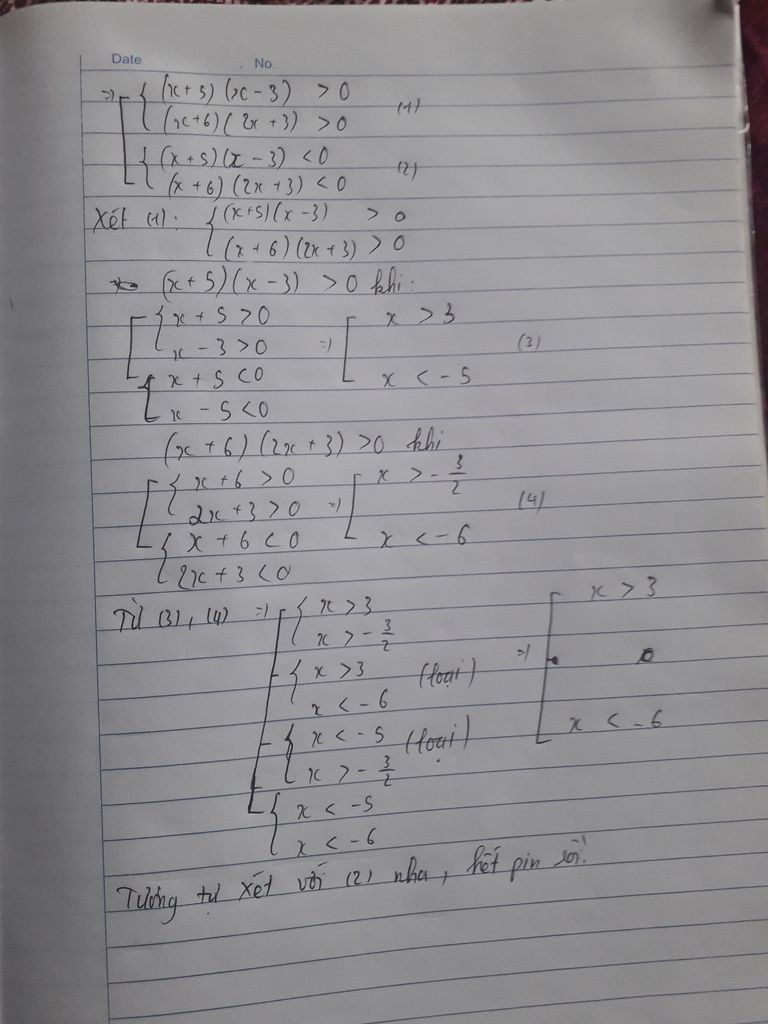 Date No.
=> [ { (x+5)(x-3) > 0
{ (x+6)(2x+3) > 0 (1)
{ (x+5)(x-3) < 0
{ (x+6)(2x+3) < 0 (2)
Xét (1): { (x+5)(x-3) > 0
{ (x+6)(2x+3) > 0
(x+5)(x-3) > 0 khi:
[ { x+5 > 0
{ x-3 > 0 => [ x > 3
{ x+5 < 0 x < -5 (3)
{ x-5 < 0
(x+6)(2x+3) > 0 khi
[ { x+6 > 0 [ x > -3/2
{ 2x+3 > 0 => (4)
{ x+6 < 0 x < -6
{ 2x+3 < 0
Từ (3), (4) => [ { x > 3 [ x > 3
{ x > -3/2
{ x > 3 (loại) =>
{ x < -6
{ x < -5 (loại) x < -6
{ x > -3/2
{ x < -5
{ x < -6
Tương tự xét với (2) nha, hết pin rồi!